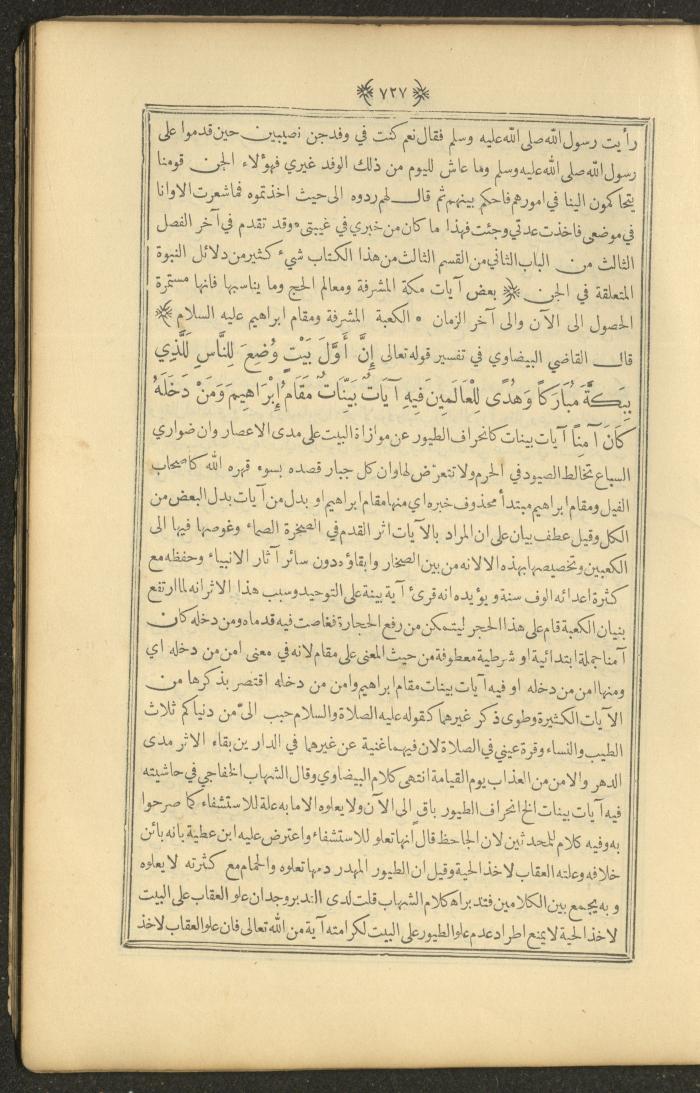 ﴿ ٧٢٧ ﴾
رأيت رسول الله صلى الله عليه وسلم فقال نعم كنت في وفد جن نصيبين حين قدموا على
رسول الله صلى الله عليه وسلم وما عاش لليوم من ذلك الوفد غيري فهؤلاء الجن قومنا
يتحاكمون الينا في امورهم فاحكم بينهم ثم قال لهم ردوه الى حيث اخذتموه فما شعرت الا وانا
في موضعي فاخذت عدتي وجئت فهذا ما كان من خبري في غيبتي * وقد تقدم في آخر الفصل
الثالث من الباب الثاني من القسم الثالث من هذا الكتاب شيء كثير من دلائل النبوة
المتعلقة في الجن ﴿ بعض آيات مكة المشرفة ومعالم الحج وما يناسبها فانها مستمرة
الحصول الى الآن والى آخر الزمان * الكعبة المشرفة ومقام ابراهيم عليه السلام ﴾
قال القاضي البيضاوي في تفسير قوله تعالى إِنَّ أَوَّلَ بَيْتٍ وُضِعَ لِلنَّاسِ لَلَّذِي
بِبَكَّةَ مُبَارَكاً وَهُدًى لِلْعَالَمِينَ فِيهِ آيَاتٌ بَيِّنَاتٌ مَقَامُ إِبْرَاهِيمَ وَمَنْ دَخَلَهُ
كَانَ آمِناً آيات بينات كانحراف الطيور عن موازاة البيت على مدى الاعصار وان ضواري
السباع تخالط الصيود في الحرم ولا تتعرض لها وان كل جبار قصده بسوء قهره الله كاصحاب
الفيل ومقام ابراهيم مبتدأ محذوف خبره اي منها مقام ابراهيم او بدل من آيات بدل البعض من
الكل وقيل عطف بيان على ان المراد بالآيات اثر القدم في الصخرة الصماء وغوصها فيها الى
الكعبين وتخصيصها بهذه الالانه من بين الصخار وابقاؤه دون سائر آثار الانبياء وحفظه مع
كثرة اعدائه الوف سنة ويؤيده انه قرئ آية بينة على التوحيد وسبب هذا الاثر انه لما ارتفع
بنيان الكعبة قام على هذا الحجر ليتمكن من رفع الحجارة فغاصت فيه قدماه ومن دخله كان
آمنا جملة ابتدائية او شرطية معطوفة من حيث المعنى على مقام لانه في معنى امن من دخله اي
ومنها امن من دخله او فيه آيات بينات مقام ابراهيم وامن من دخله اقتصر بذكرها من
الآيات الكثيرة وطوى ذكر غيرهما كقوله عليه الصلاة والسلام حبب الي من دنياكم ثلاث
الطيب والنساء وقرة عيني في الصلاة لان فيهما غنية عن غيرهما في الدارين بقاء الاثر مدى
الدهر والامن من العذاب يوم القيامة انتهى كلام البيضاوي وقال الشهاب الخفاجي في حاشيته
فيه آيات بينات الخ انحراف الطيور باقي الى الآن ولا يعلوه الا ما به علة للاستشفاء كما صرحوا
به وفيه كلام للمحدثين لان الجاحظ قال انها تعلو للاستشفاء واعترض عليه ابن عطية بانه بائن
خلافه وعلته العقاب لاخذ الحية وقيل ان الطيور المهدر دمها تعلوه والحمام مع كثرته لا يعلوه
وبه يجمع بين الكلامين فتدبراه كلام الشهاب قلت لدى التدبر وجدان علو العقاب على البيت
لاخذ الحية لا يمنع اطراد عدم علو الطيور على البيت لكرامته آية من الله تعالى فان علو العقاب لاخذ